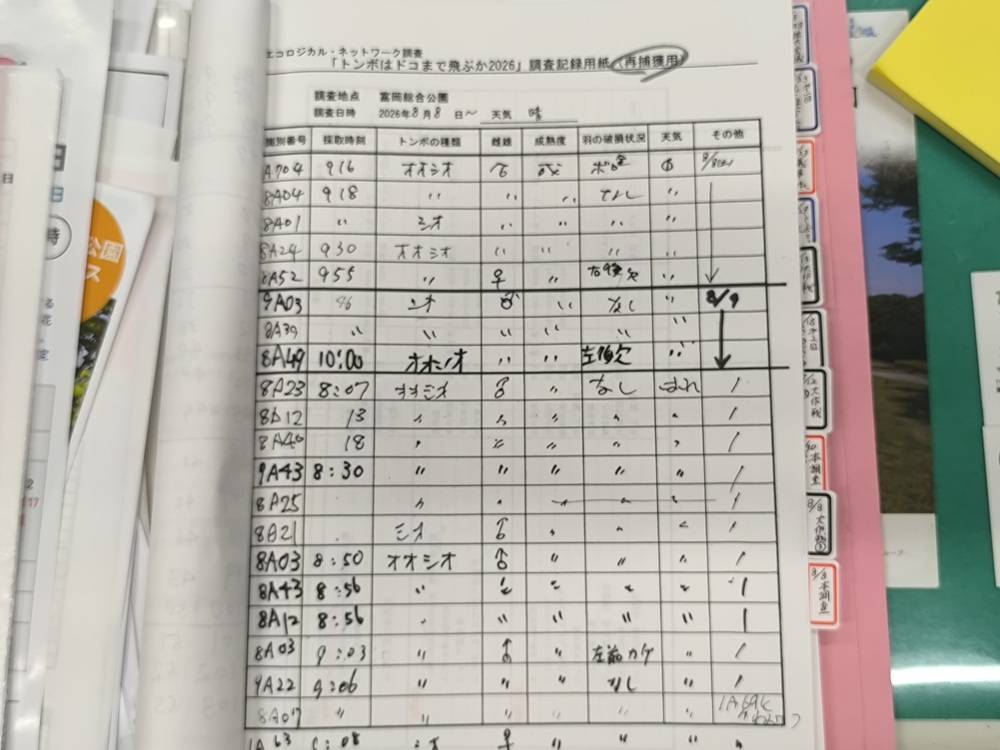 エコロジカル・ネットワーク調査
「トンボはドコまで飛ぶか2026」調査記録用紙(再捕獲用)
調査地点 富岡総合公園
調査日時 2026年8月8日〜 天気 晴
識別番号 採取時刻 トンボの種類 雌雄 成熟度 羽の破損状況 天気 その他
A704 916 オオシオ ♂ 成
8A04 918 〃 〃 〃 なし 〃
8A01 〃 シオ 〃 〃 〃 〃
8A24 930 オオシオ 〃 〃 〃 〃
8A52 955 〃 ♀ 〃 右後欠 〃
9A03 シオ ♂ 〃 なし 〃 8/9
8A39 〃 〃 〃 〃 〃 〃
8A49 10:00 オオシオ 〃 〃 左後欠 〃
8A23 8:07 オオシオ ♂ 〃 なし はれ /
8A12 13 〃 〃 〃 〃 〃 /
8A40 18 〃 〃 〃 〃 〃 /
9A43 8:30 〃 〃 〃 〃 〃 /
8A25 〃 〃 〃 〃 /
8A21 シオ ♂ 〃 〃 〃 /
8A03 8:50 オオシオ ♂ 〃 〃 〃 /
8A43 8:56 〃 〃 〃 〃 〃 /
8A12 8:56 〃 〃 〃 〃 〃 /
8A03 9:03 〃 ♂ 〃 左前カケ 〃 /
9A22 9:06 〃 〃 〃 なし 〃 /
8A07 〃 〃 〃 〃 〃 〃
1A63 シオ ♀ 〃 〃 〃
公園
時
日
本調査
8/8 大作戦①
8/8 本調査